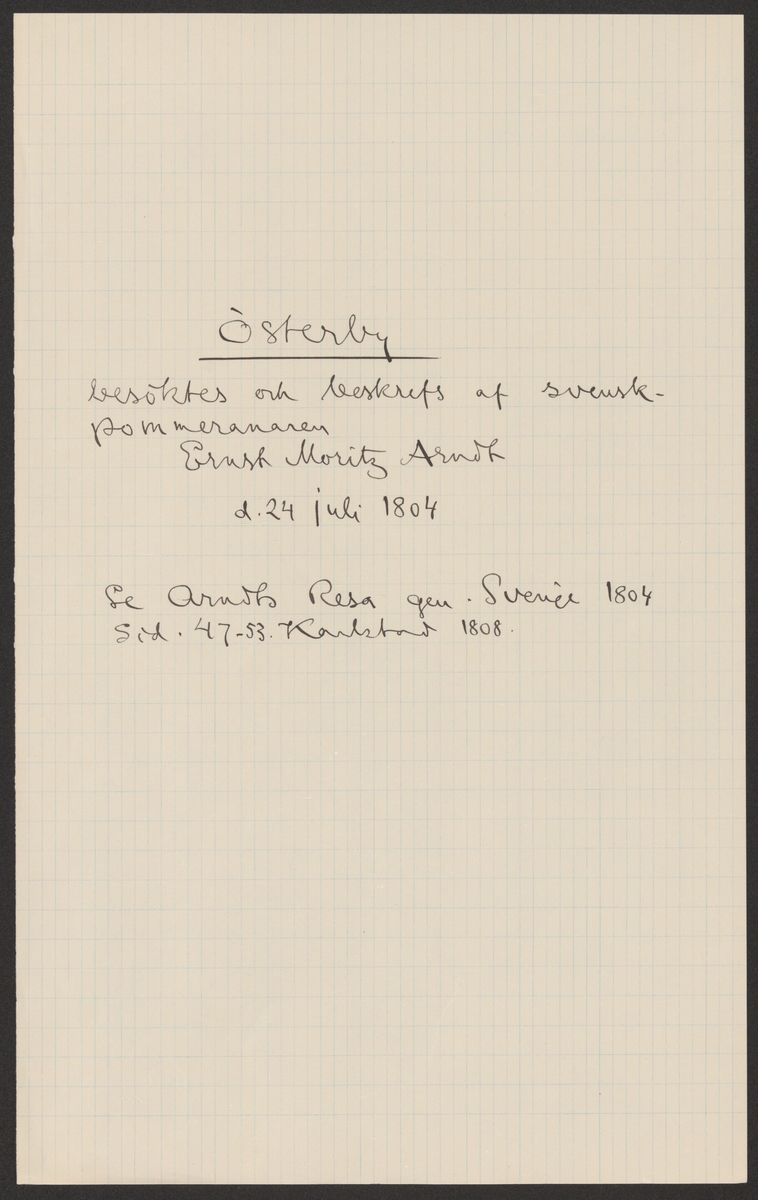 Österby
besöktes och beskrefs af svensk-
pommeranaren
Ernst Moritz Arndt
d. 24 juli 1804
Se Arndts Resa gen. Sverige 1804
Sid. 47-53. Karlstad 1808.